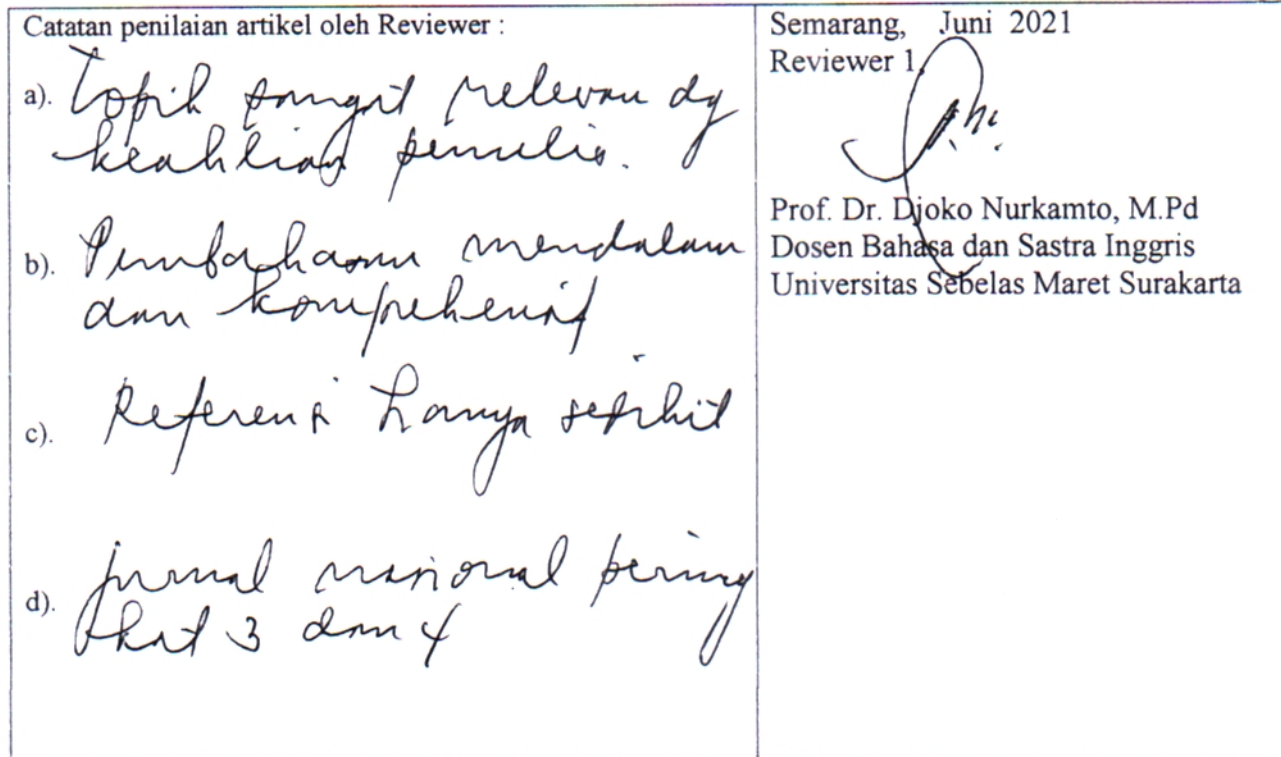 Catatan penilaian artikel oleh Reviewer :
a). Topik sangat relevan dg
keahlian penulis.
b). Pembahasan mendalam
dan komprehensif
c). Referensi hanya sedikit
d). jurnal nasional pering
kat 3 dan 4
Semarang, Juni 2021
Reviewer 1,
Prof. Dr. Djoko Nurkamto, M.Pd
Dosen Bahasa dan Sastra Inggris
Universitas Sebelas Maret Surakarta